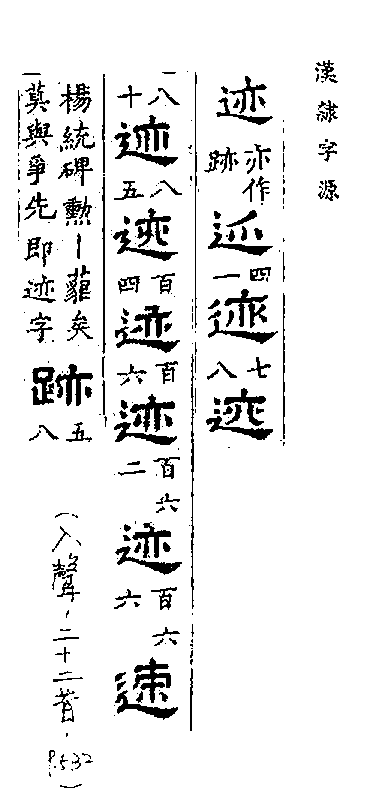 漢隸字源
迹亦作跡迹四一迹七八迹
八十迹八五迹百四迹百六迹百六二迹百六六速
楊統碑勲丨藐矣莫與爭先即迹字跡五八(入聲,二十二昔,P.532)